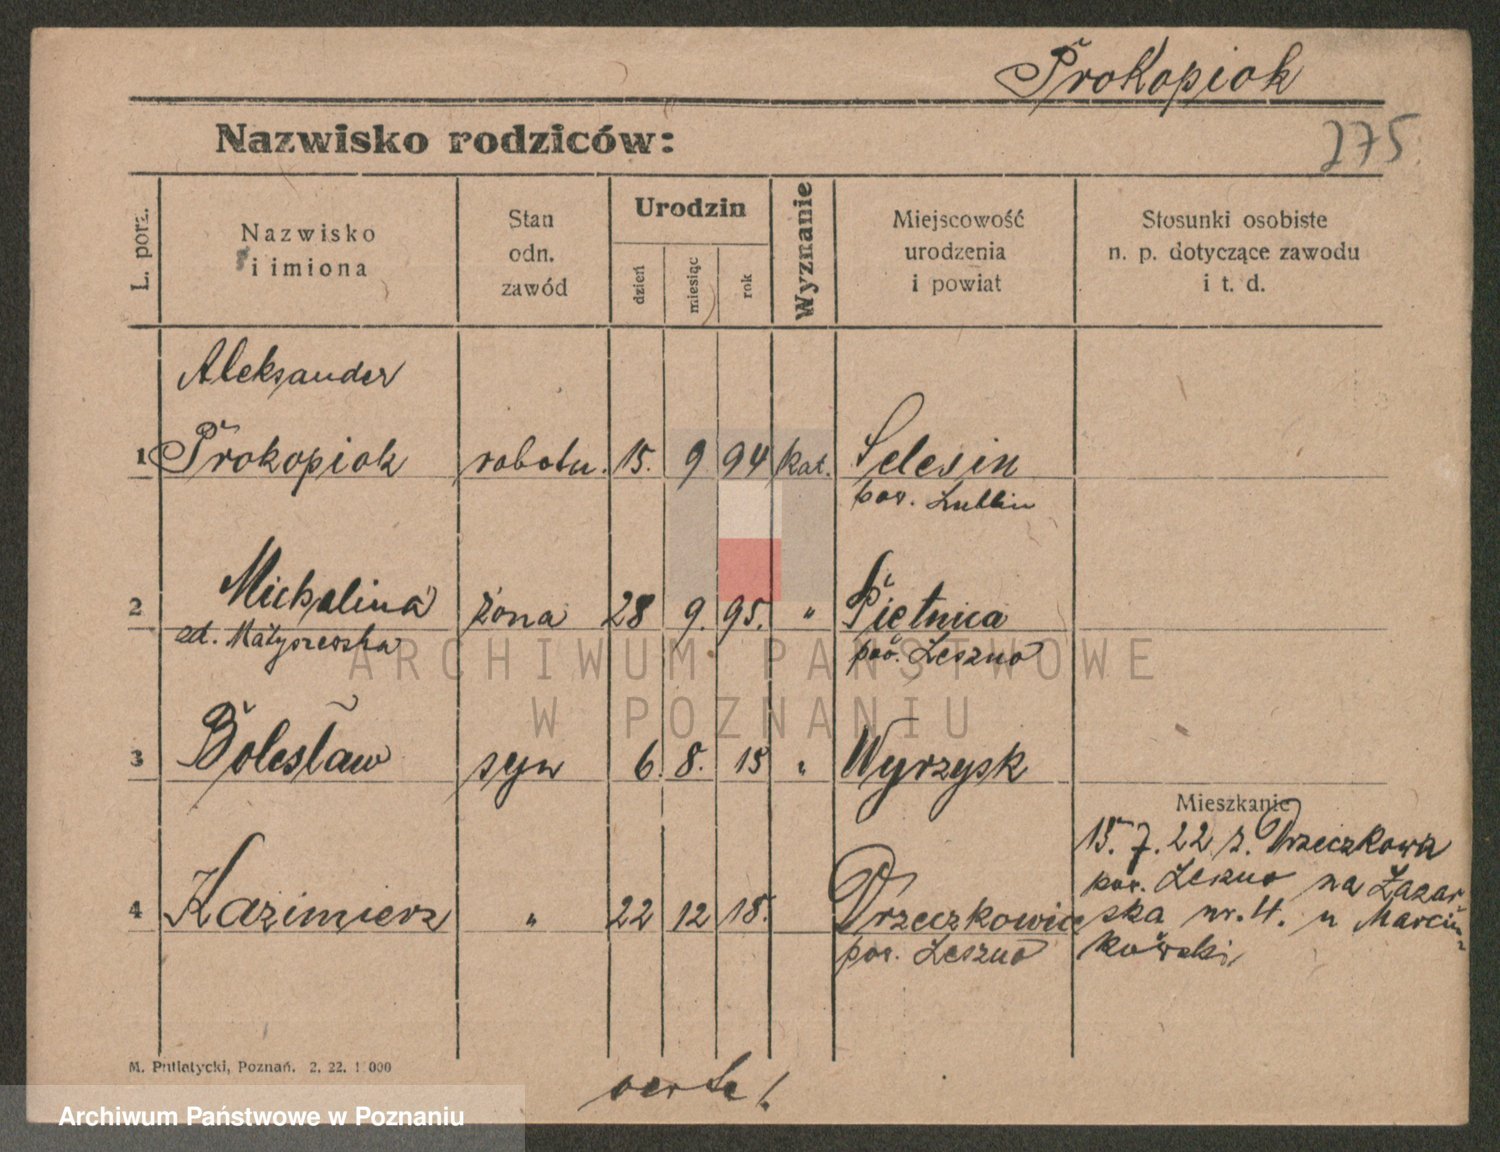 Prokopiok
Nazwisko rodziców:
275
L. porz.
Nazwisko
i imiona
Stan
odn.
zawód
Urodzin
dzień
miesiąc
rok
Wyznanie
Miejscowość
urodzenia
i powiat
Stosunki osobiste
n. p. dotyczące zawodu
i t. d.
Aleksander
1 Prokopiok robotn. 15. 9. 94 kat. Selesin
pow. Lublin
2 Michalina żona 28 9. 95. " Piętnica
zd. Małyszewska pow. Leszno
3 Bolesław syn 6. 8. 15 " Wyrzysk
Mieszkanie
15. 7. 22 z. Drzeczkowa
pow. Leszno na Łazar-
4 Kazimierz " 22 12 18. Drzeczkowice ska nr. 4. u Marcin-
pow. Leszno kowski
M. Putiatycki, Poznań. 2. 22. 1000
verte!
ARCHIWUM PAŃSTWOWE
W POZNANIU
Archiwum Państwowe w Poznaniu